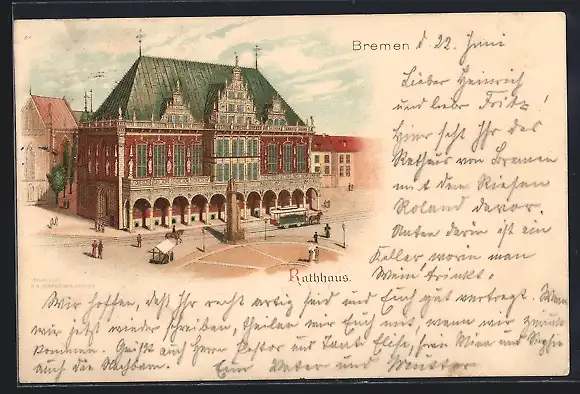 Bremen d 22. Juni
Lieber Heinrich
und lieber Fritz!
Hier seht Ihr das
Rathaus von Bremen
mit dem Riesen
Roland davor.
Unten darin ist ein
Keller worin man
Wein trinkt.
Rathhaus.
Wir hoffen, daß Ihr recht artig seid und Euch gut vertragt. Wann
wir jetzt wieder schreiben, theilen wir Euch mit, wenn wir zurück
kommen. Grüßt auch Herrn Pastor und Tante Elise, Frau Mina und Sophie
auch die Nachbarn. Eure Vater und Mutter